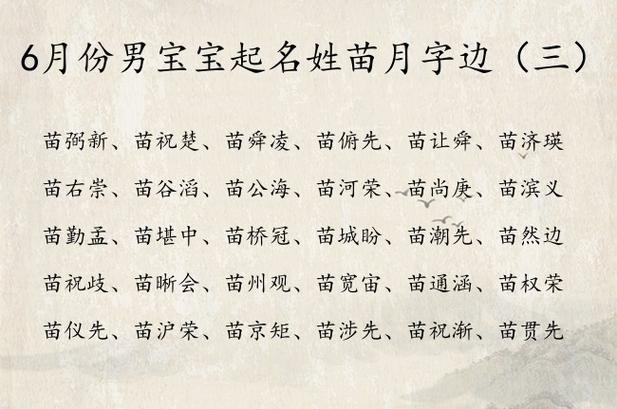 6月份男宝宝起名姓苗月字边（三）
苗弼新、苗祝楚、苗舜凌、苗俯先、苗让舜、苗济瑛
苗右崇、苗谷滔、苗公海、苗河荣、苗尚庚、苗滨义
苗勤孟、苗堪中、苗桥冠、苗城盼、苗潮先、苗然边
苗祝歧、苗晰会、苗州观、苗宽宙、苗通涵、苗权荣
苗仪先、苗沪荣、苗京矩、苗涉先、苗祝渐、苗贯先